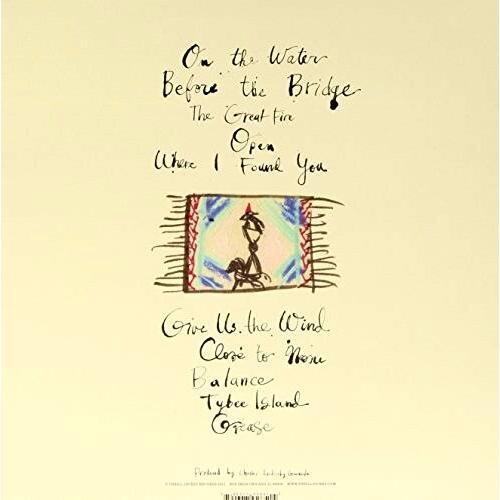 On the Water
Before the Bridge
The Great Fire
Open
Where I Found You
Give Us the Wind
Close to
Balance
Tybee Island
Grease
Produced by